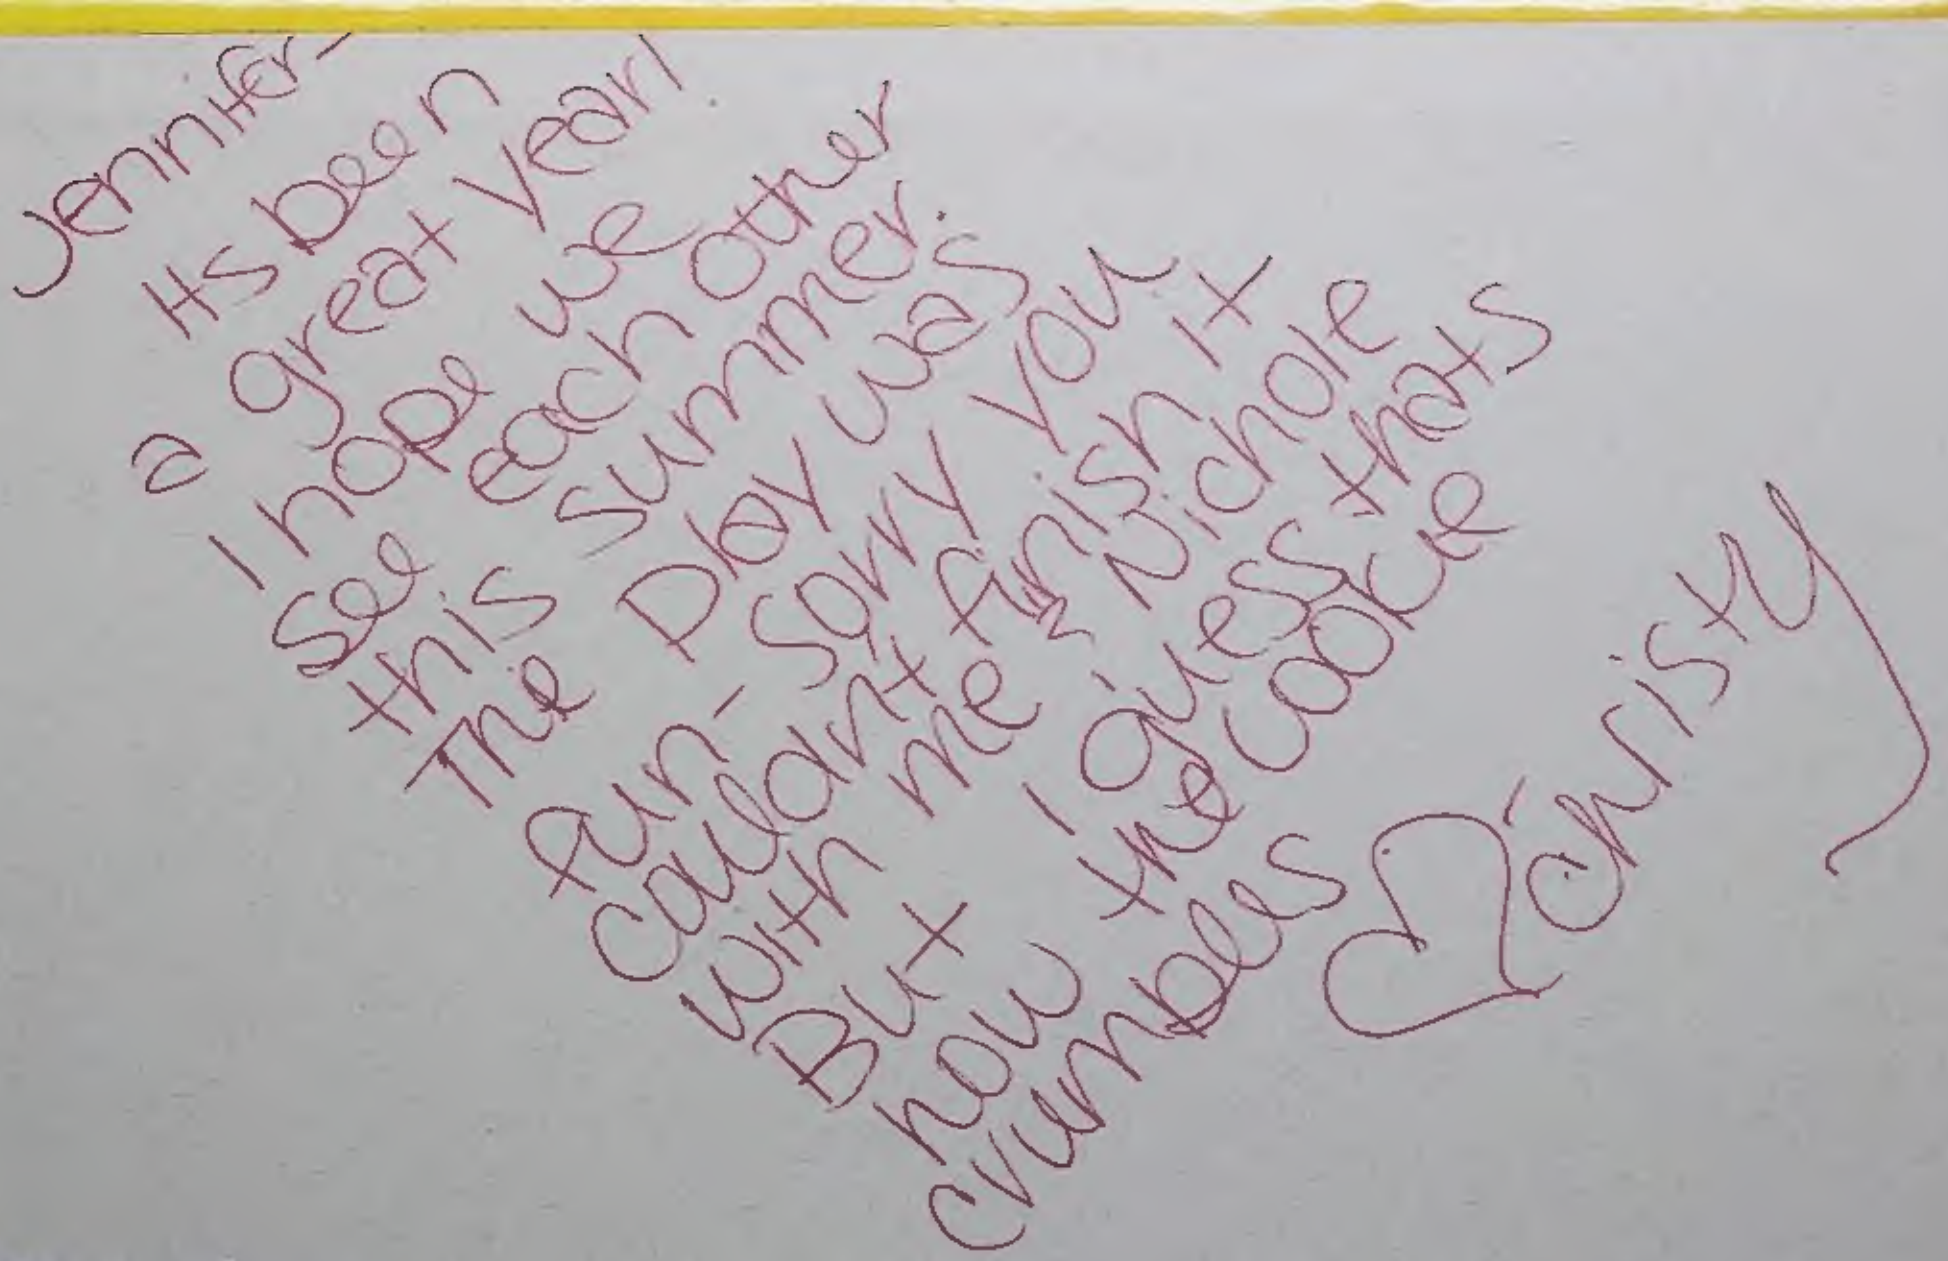 Jennifer-
Its been
a great year!
I hope we
see each other
this summer.
The play was
fun- sorry you
couldnt finish it
with me & Nichole
But I guess thats
how the cookie
crumbles
♡ Christy